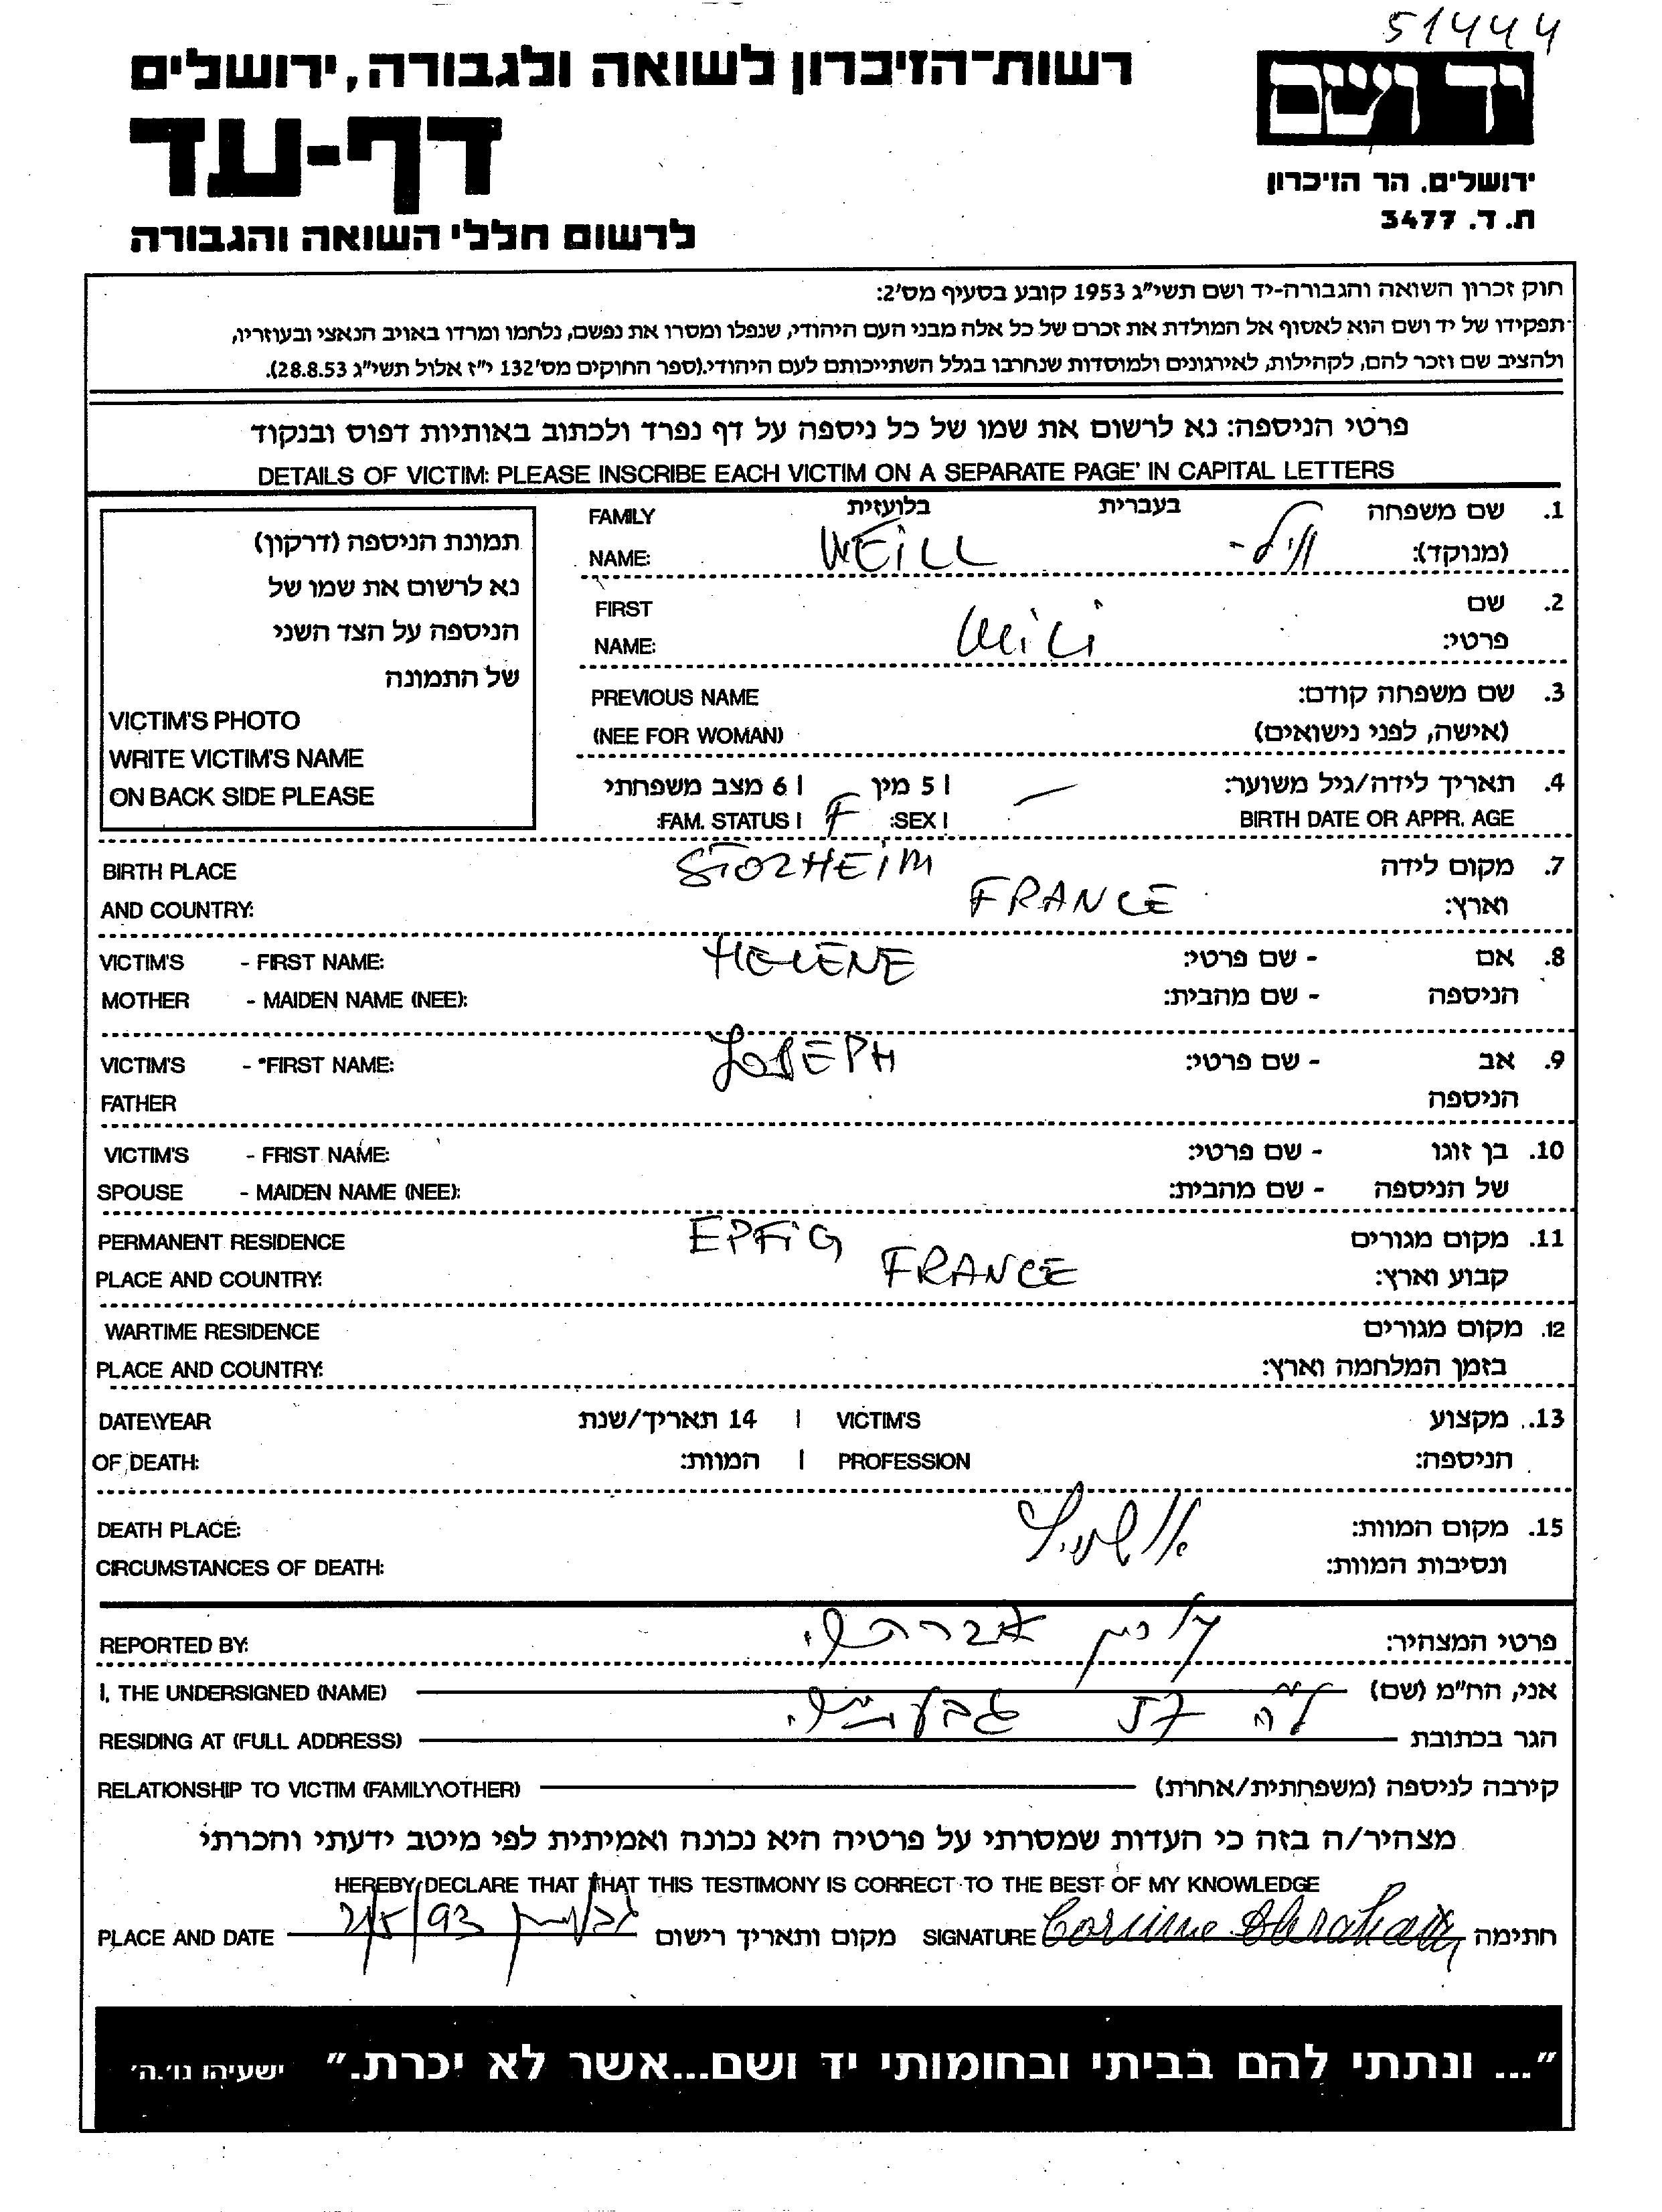 51444
רשות-הזיכרון לשואה ולגבורה, ירושלים
דף-עד
לרשום חללי השואה והגבורה
יד ושם
ירושלים. הר הזיכרון
ת. ד. 3477
חוק זכרון השואה והגבורה-יד ושם תשי"ג 1953 קובע בסעיף מס'2:
תפקידו של יד ושם הוא לאסוף אל המולדת את זכרם של כל אלה מבני העם היהודי, שנפלו ומסרו את נפשם, נלחמו ומרדו באויב הנאצי ובעוזריו,
ולהציב שם וזכר להם, לקהילות, לאירגונים ולמוסדות שנחרבו בגלל השתייכותם לעם היהודי.(ספר החוקים מס'132 י"ז אלול תשי"ג 28.8.53).
פרטי הניספה: נא לרשום את שמו של כל ניספה על דף נפרד ולכתוב באותיות דפוס ובנקוד
DETAILS OF VICTIM: PLEASE INSCRIBE EACH VICTIM ON A SEPARATE PAGE' IN CAPITAL LETTERS
תמונת הניספה (דרקון)
נא לרשום את שמו של
הניספה על הצד השני
של התמונה
VICTIM'S PHOTO
WRITE VICTIM'S NAME
ON BACK SIDE PLEASE
1. שם משפחה בעברית בלועזית FAMILY
(מנוקד): וייל- WEiLL NAME:
2. שם FIRST
פרטי: NAME:
3. שם משפחה קודם: PREVIOUS NAME
(אישה, לפני נישואים) (NEE FOR WOMAN)
4. תאריך לידה/גיל משוער: 5 מין 6 מצב משפחתי
BIRTH DATE OR APPR. AGE SEX: F FAM. STATUS:
7. מקום לידה STOZHEiM BIRTH PLACE
וארץ: FRANCE AND COUNTRY:
8. אם - שם פרטי: HELENE VICTIM'S - FIRST NAME:
הניספה - שם מהבית: MOTHER - MAIDEN NAME (NEE):
9. אב - שם פרטי: JOSEPH VICTIM'S - "FIRST NAME:
הניספה FATHER
10. בן זוגו - שם פרטי: VICTIM'S - FRIST NAME:
של הניספה - שם מהבית: SPOUSE - MAIDEN NAME (NEE):
11. מקום מגורים EPFiG PERMANENT RESIDENCE
קבוע וארץ: FRANCE PLACE AND COUNTRY:
12. מקום מגורים WARTIME RESIDENCE
בזמן המלחמה וארץ: PLACE AND COUNTRY:
13. מקצוע VICTIM'S 14 תאריך/שנת DATE\YEAR
הניספה: PROFESSION המוות: OF DEATH:
15. מקום המוות: אושוויץ DEATH PLACE:
ונסיבות המוות: CIRCUMSTANCES OF DEATH:
פרטי המצהיר: אברהם REPORTED BY:
אני, הח"מ (שם) I, THE UNDERSIGNED (NAME)
הגר בכתובת גבעתיים RESIDING AT (FULL ADDRESS)
קירבה לניספה (משפחתית/אחרת) RELATIONSHIP TO VICTIM (FAMILY\OTHER)
מצהיר/ה בזה כי העדות שמסרתי על פרטיה היא נכונה ואמיתית לפי מיטב ידעתי והכרתי
HEREBY DECLARE THAT THAT THIS TESTIMONY IS CORRECT TO THE BEST OF MY KNOWLEDGE
חתימה Corinne Abraham SIGNATURE מקום ותאריך רישום גבעתיים 2/5/93 PLACE AND DATE
"... ונתתי להם בביתי ובחומותי יד ושם...אשר לא יכרת." ישעיהו נו'.ה'